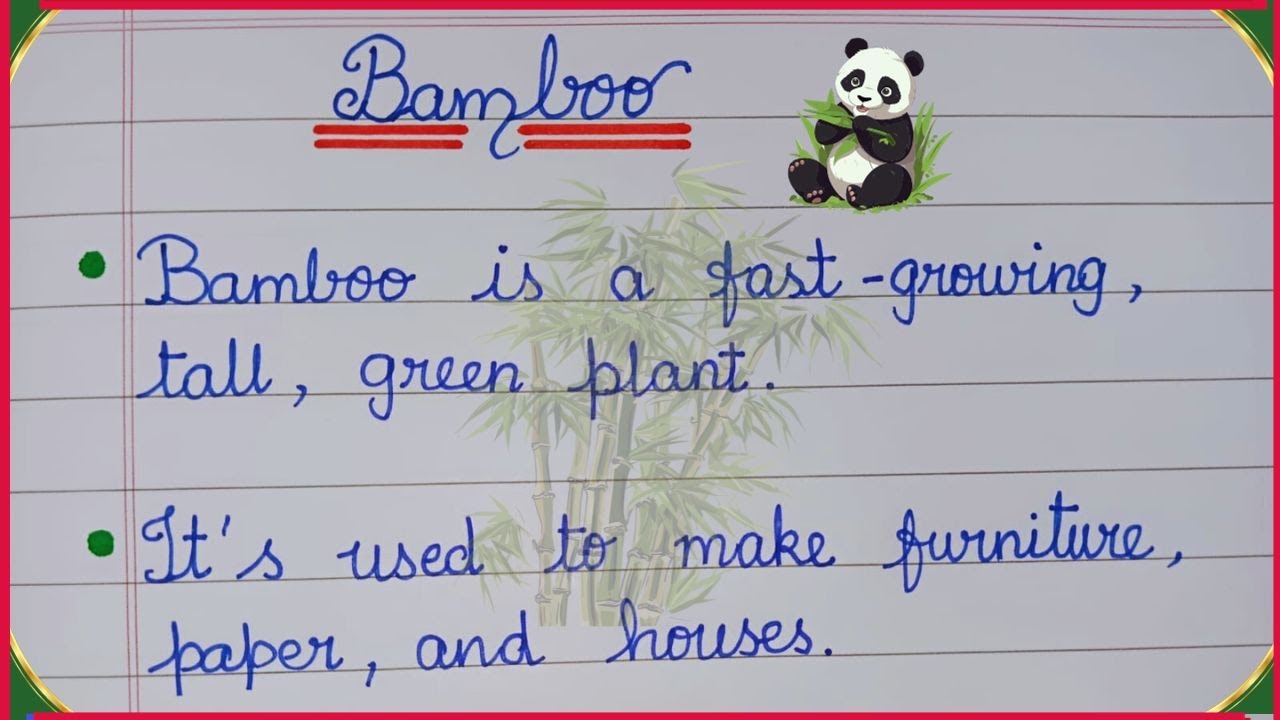 Bamboo
Bamboo is a fast-growing,
tall, green plant.
It's used to make furniture,
paper, and houses.